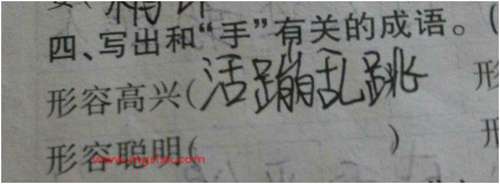 四、写出和“手”有关的成语。(
形容高兴(活蹦乱跳 形
形容聪明( )